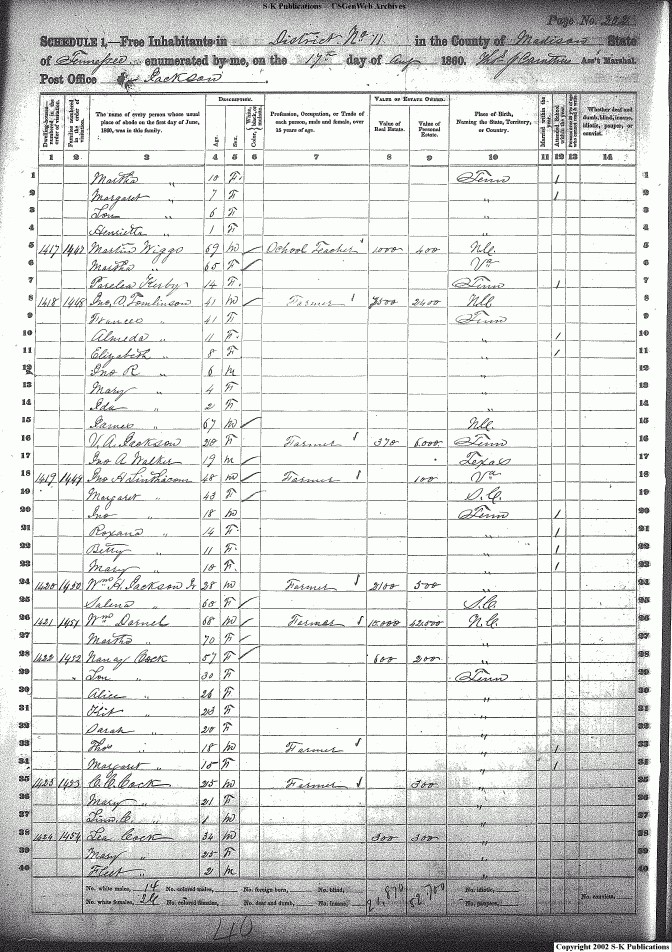 S-K Publications - USGenWeb Archives
Page No. 202
SCHEDULE 1.—Free Inhabitants in District No 11 in the County of Madison State
of Tennessee enumerated by me, on the 17th day of Aug 1860. Ass't Marshal.
Post Office Jackson
DESCRIPTION. VALUE OF ESTATE OWNED.
Dwelling-houses numbered in the order of visitation. Families numbered in the order of visitation. The name of every person whose usual place of abode on the first day of June, 1860, was in this family. Age. Sex. Color, Profession, Occupation, or Trade of each person, male and female, over 15 years of age. Value of Real Estate. Value of Personal Estate. Place of Birth, Naming the State, Territory, or Country. Married within the year. Attended School within the year. Whether deaf and dumb, blind, insane, idiotic, pauper, or convict.
1 2 3 4 5 6 7 8 9 10 11 12 13 14
1 Martha " 10 F. Tenn 1 1
2 Margaret " 7 F " 1 2
3 Lou " 6 F " 3
4 Henrietta " 1 F " 4
5 1417 1447 Martin Wiggs 69 m School Teacher 1000 400 N.C. 5
6 Martha " 65 F Va 6
7 Kerby 14 F Tenn 1 7
8 1418 1448 Jno. D. Tomlinson 41 m Farmer 7500 2400 N.C. 8
9 Frances " 41 F Tenn 9
10 Almeda " 11 F " 1 10
11 Elizabeth " 8 F " 1 11
12 Jno R " 6 m " 12
13 Mary " 4 F " 13
14 Ida " 2 F " 14
15 James " 67 m N.C. 15
16 V. A. Jackson 20 F Farmer 370 6000 Tenn 16
17 Jno A Walker 19 m Texas 17
18 1419 1449 Jno H 48 m Farmer 100 Va 18
19 Margaret " 43 F S.C. 19
20 Jno " 18 m Tenn 1 20
21 Roxana " 14 F " 1 21
22 Betty " 11 F " 1 22
23 Mary " 10 F " 1 23
24 1420 1450 Wm H. Jackson Jr 28 m Farmer 2100 500 " 24
25 Salena " 60 F S.C. 25
26 1421 1451 Wm Darnel 68 m Farmer 15.000 42.000 N.C. 26
27 Martha " 70 F " 27
28 1422 1452 Nancy Cock 57 F 600 200 " 28
29 " Lou " 30 F Tenn 29
30 Alice " 26 F " 30
31 Kit " 23 F " 31
32 Sarah " 20 F " 32
33 Tho " 18 m Farmer " 1 33
34 Margaret " 15 F " 1 34
35 1423 1453 C. C. Cock 25 m Farmer 300 " 35
36 Mary " 21 F " 36
37 " 1 m " 37
38 1424 1454 Lea Cock 34 m 300 300 " 38
39 Mary " 25 F " 39
40 Fleet " 2 m " 40
No. white males, 14 No. colored males, No. foreign born, No. blind, No. idiotic,
No. white females, 26 No. colored females, No. deaf and dumb, No. insane, No. paupers, No. convicts,
52,700
40
Copyright 2002 S-K Publications